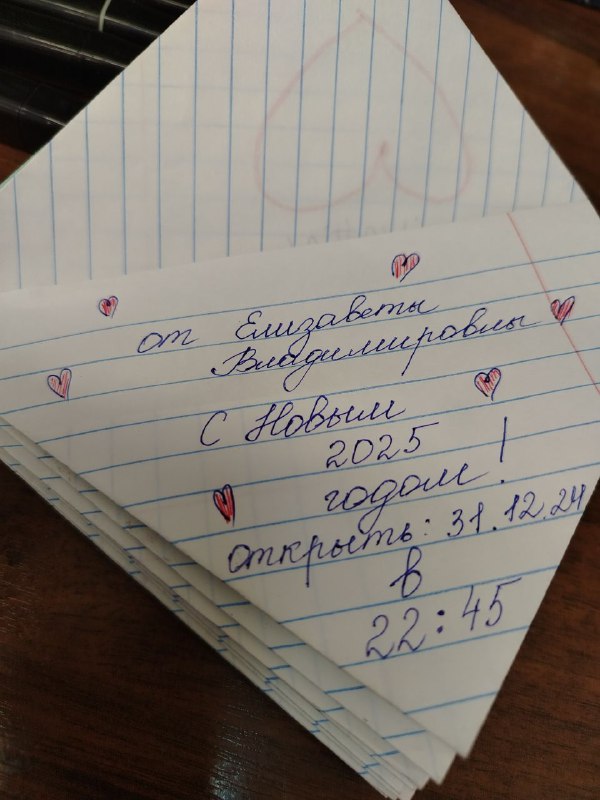 от Елизаветы
Владимировны
С Новым
2025
годом!
открыть: 31.12.24
в
22:45